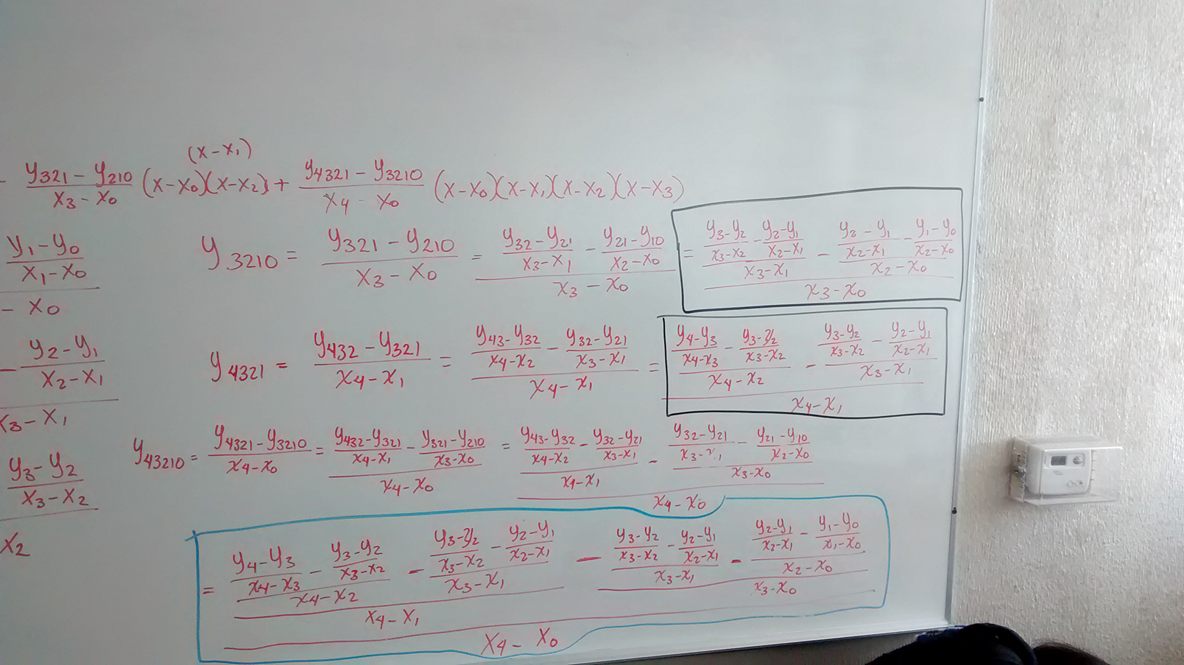 - \frac{y_{321} - y_{210}}{x_3 - x_0} (x-x_0)(x-x_1)(x-x_2) + \frac{y_{4321} - y_{3210}}{x_4 - x_0} (x-x_0)(x-x_1)(x-x_2)(x-x_3)
\frac{y_1-y_0}{x_1-x_0}
- x_0
y_{3210} = \frac{y_{321} - y_{210}}{x_3 - x_0} = \frac{\frac{y_{32}-y_{21}}{x_3-x_1} - \frac{y_{21}-y_{10}}{x_2-x_0}}{x_3-x_0} = \frac{\frac{\frac{y_3-y_2}{x_3-x_2} - \frac{y_2-y_1}{x_2-x_1}}{x_3-x_1} - \frac{\frac{y_2-y_1}{x_2-x_1} - \frac{y_1-y_0}{x_2-x_0}}{x_2-x_0}}{x_3-x_0}
- \frac{y_2-y_1}{x_2-x_1}
x_3-x_1
y_{4321} = \frac{y_{432} - y_{321}}{x_4-x_1} = \frac{\frac{y_{43}-y_{32}}{x_4-x_2} - \frac{y_{32}-y_{21}}{x_3-x_1}}{x_4-x_1} = \frac{\frac{\frac{y_4-y_3}{x_4-x_3} - \frac{y_3-y_2}{x_3-x_2}}{x_4-x_2} - \frac{\frac{y_3-y_2}{x_3-x_2} - \frac{y_2-y_1}{x_2-x_1}}{x_3-x_1}}{x_4-x_1}
\frac{y_3-y_2}{x_3-x_2}
x_2
y_{43210} = \frac{y_{4321}-y_{3210}}{x_4-x_0} = \frac{\frac{y_{432}-y_{321}}{x_4-x_1} - \frac{y_{321}-y_{210}}{x_3-x_0}}{x_4-x_0} = \frac{\frac{\frac{y_{43}-y_{32}}{x_4-x_2} - \frac{y_{32}-y_{21}}{x_3-x_1}}{x_4-x_1} - \frac{\frac{y_{32}-y_{21}}{x_3-x_1} - \frac{y_{21}-y_{10}}{x_2-x_0}}{x_3-x_0}}{x_4-x_0}
= \frac{\frac{\frac{\frac{y_4-y_3}{x_4-x_3} - \frac{y_3-y_2}{x_3-x_2}}{x_4-x_2} - \frac{\frac{y_3-y_2}{x_3-x_2} - \frac{y_2-y_1}{x_2-x_1}}{x_3-x_1}}{x_4-x_1} - \frac{\frac{\frac{y_3-y_2}{x_3-x_2} - \frac{y_2-y_1}{x_2-x_1}}{x_3-x_1} - \frac{\frac{y_2-y_1}{x_2-x_1} - \frac{y_1-y_0}{x_1-x_0}}{x_2-x_0}}{x_3-x_0}}{x_4-x_0}